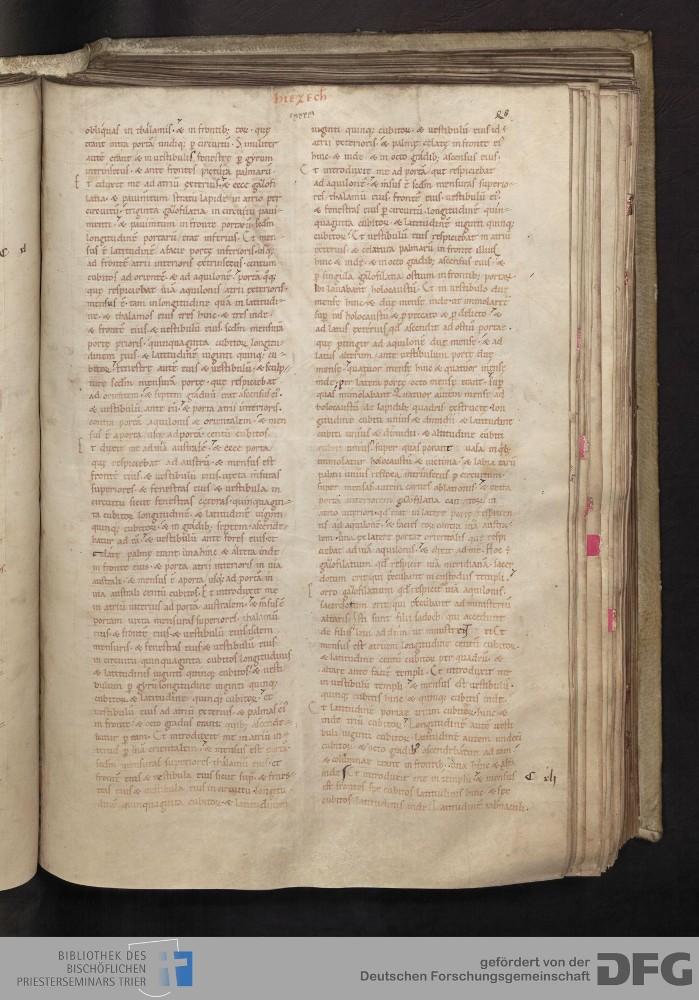 hiezech
obliquas in thalamis. & in frontib; eor. que
erant intra portā undiq; p circuitū. Similiter
autē erant & in uestibulis fenestre p gyrum
intrinsecus. & ante frontes pictura palmarū.
Et eduxit me ad atriū exterius. & ecce gazofi
latia. & pauimentum stratū lapide in atrio per
circuitū. triginta gazofilatia in circuitu paui
menti. & pauimentum in fronte portarū scdm
longitudinē portarū erat inferius. Et men
sus ē latitudinē a facie porte inferioris usq;
ad frontē atrii interioris extrinsecus. centum
cubitos ad orientē. & ad aquilonē. portā q;
que respiciebat uiā aquilonis atrii exterioris
mensus ē. tam in longitudine quā in latitudi
ne. & thalamos eius tres hinc. & tres inde.
& frontē eius. & uestibulū eius. scdm mensurā
porte prioris. quinquaginta cubitor. longitu
dinem eius. & latitudinē uiginti quinq; cu
bitor.
ad orientem. & septem graduū erat ascensus ei.
& uestibulū ante eū. & porta atrii interioris
contra portā aquilonis & orientalem. & men
sus ē a porta usq; ad portā centū cubitos.
Et duxit me ad uiā australē. & ecce porta
que respiciebat ad austrū. & mensus est
frontē eius. & uestibulū eius. iuxta mensuras
superiores. & fenestras eius. & uestibula in
circuitu sicut fenestras ceteras. quinquagin
ta cubitor. longitudinē. & latitudinē uiginti
quinq; cubitor. & in gradib; septem ascende
batur ad eā. & uestibulū ante fores eius. et
celate palme erant una hinc & altera inde
in fronte eius. & porta atrii interioris in uia
australi. & mensus ē a porta usq; ad portā in
uia australi centū cubitos. Et introduxit me
in atriū interius ad portā australem. & mensus ē
portam iuxta mensuras superiores. thalamū
eius. & frontē eius. & uestibulū eius eisdem
mensuris. & fenestras eius & uestibulū eius
in circuitu quinquaginta cubitos longitudinis
& latitudinis uiginti quinq; cubitos. & uesti
bulum p gyrū longitudine uiginti quinq;
cubitor. & latitudine quinq; cubitor. et
uestibulū eius ad atriū exterius. & palmas ei
in fronte. & octo gradus erant quib; ascende
batur p eam. Et introduxit me in atriū in
teri p uiā orientalem. & mensus est portā
scdm mensuras superiores. thalamū eius. et
frontē eius. & uestibula eius sicut sup. & fenes
tras eius. & uestibula eius in circuitu. longitu
dinē quinquaginta cubitor. & latitudinem
uiginti quinq; cubitor. & uestibulū eius id ē
atrii exterioris. & palme celate in fronte ei
hinc & inde. & in octo gradib; ascensus eius.
Et introduxit me ad portā que respiciebat
ad aquilonē. & mensus ē scdm mensuras superio
res. thalamū eius. frontē eius. uestibulū ei.
& fenestras eius p circuitū. longitudinē quin
quaginta cubitor. & latitudinē uiginti quinq;
cubitor. Et uestibulū eius respiciebat in atriū
exterius. & celatura palmarū in fronte illius
hinc & inde. & in octo gradib; ascensus eius. &
p singula gazofilatia ostium in frontib; portar.
Ibi lauabant holocaustū. Et in uestibulo due
mense hinc & due mense inde. ut immoletur
sup eas holocaustū & p peccato & p delicto. &
ad latus exterius qd ascendit ad ostiū porte.
que pergit ad aquilonē due mense. & ad
latus alterum. ante uestibulum porte due
mense. quatuor mense hinc & quatuor mense
inde. per latera porte octo mense erant. sup
quas immolabant. Quatuor autem mense ad
holocaustū de lapidib; quadris exstructe. lon
gitudine cubiti unius & dimidii & latitudine
cubiti unius & dimidii. & altitudine cubiti
cubiti unius. super quas ponant uasa. in qb;
immolatur holocaustū & uictima. & labia earū
palmi unius reflexa intrinsecus p circuitum.
super mensas autem carnes oblationis. & extra
portā interiorem gazofilatia cantorum in
atrio interiori. qd erat in latere porte respicien
tis ad aquilonē. & facies eor. contra uiā austra
lem. una ex latere porte orientalis que respi
ciebat ad uiā aquilonis. & dixit ad me. Hoc ē
gazofilatium qd respicit uiā meridianā. sacer
dotum erit qui excubant in custodiis templi.
Porro gazofilatium qd respicit uiā aquilonis.
sacerdotum erit qui excubant ad ministeriū
altaris. Isti sunt filii sadoch. qui accedunt
de filiis leui ad dnm ut ministrent ei. Et
mensus est atrium longitudine centū cubitor.
& latitudine centū cubitor. per quadrū. &
altare ante faciē templi. Et introduxit me
in uestibulū templi. & mensus est uestibulū.
quinq; cubitis hinc & quinq; cubitis inde.
Et latitudinē portae trium cubitor. hinc &
inde triū cubitor. Longitudinē autē uesti
buli uiginti cubitor. latitudinē autem undeci
cubitor. & octo gradib; ascendebatur ad eam
& columnae erant in frontib; una hinc & altera
inde. Et introduxit me in templū. & mensus C xli
est frontes. sex cubitos latitudinis hinc. & sex
cubitos latitudinis inde. latitudinē tabernaculi.
BIBLIOTHEK DES
BISCHÖFLICHEN
PRIESTERSEMINARS TRIER
gefördert von der
Deutschen Forschungsgemeinschaft
DFG